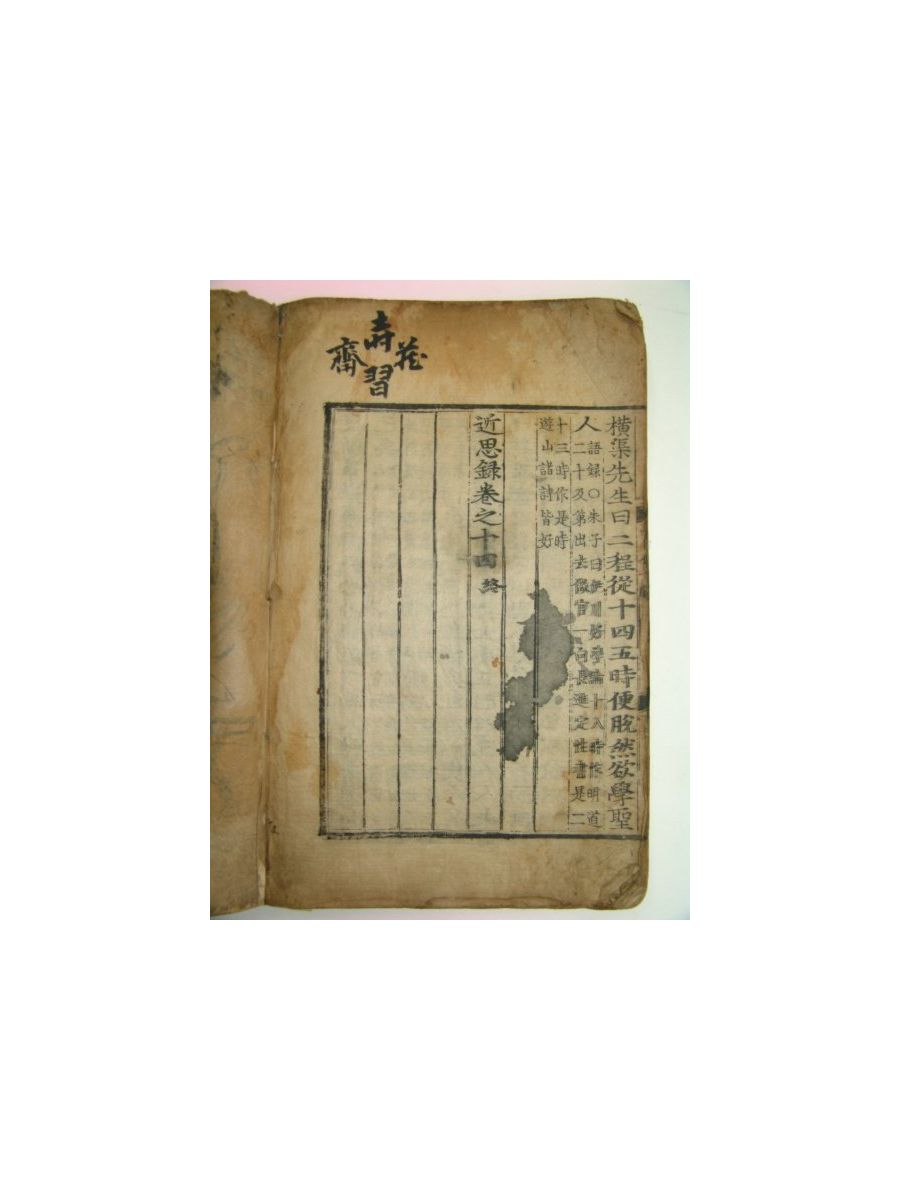 習
齋
藏
橫渠先生曰二程從十四五時便脫然欲學聖
人
語録○朱子曰伊川好學論十八時作明道
二十及第出去做官一向長進定性書是二
十三時作是時
遊山諸詩皆好
近思録卷之十四 終